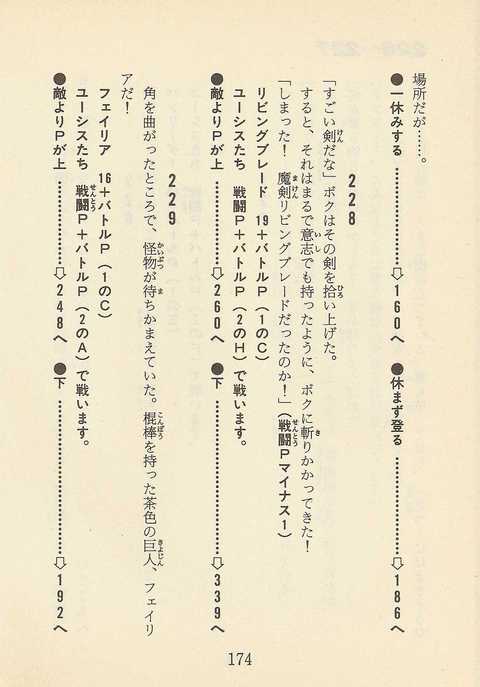 場所だが……。
●一休みする…………⇨160へ　●休まず登る…………⇨186へ
228
「すごい剣だな」ボクはその剣を拾い上げた。
すると、それはまるで意志でも持ったように、ボクに斬りかかってきた！
「しまった！　魔剣リビングブレードだったのか！」（戦闘Pマイナス1）
リビングブレード　19＋バトルP（1のC）
ユーシスたち　戦闘P＋バトルP（2のH）で戦います。
●敵よりPが上…………⇨260へ　●下…………⇨339へ
229
角を曲がったところで、怪物が待ちかまえていた。棍棒を持った茶色の巨人、フェイリ
アだ！
フェイリア　16＋バトルP（1のC）
ユーシスたち　戦闘P＋バトルP（2のA）で戦います。
●敵よりPが上…………⇨248へ　●下…………⇨192へ
174